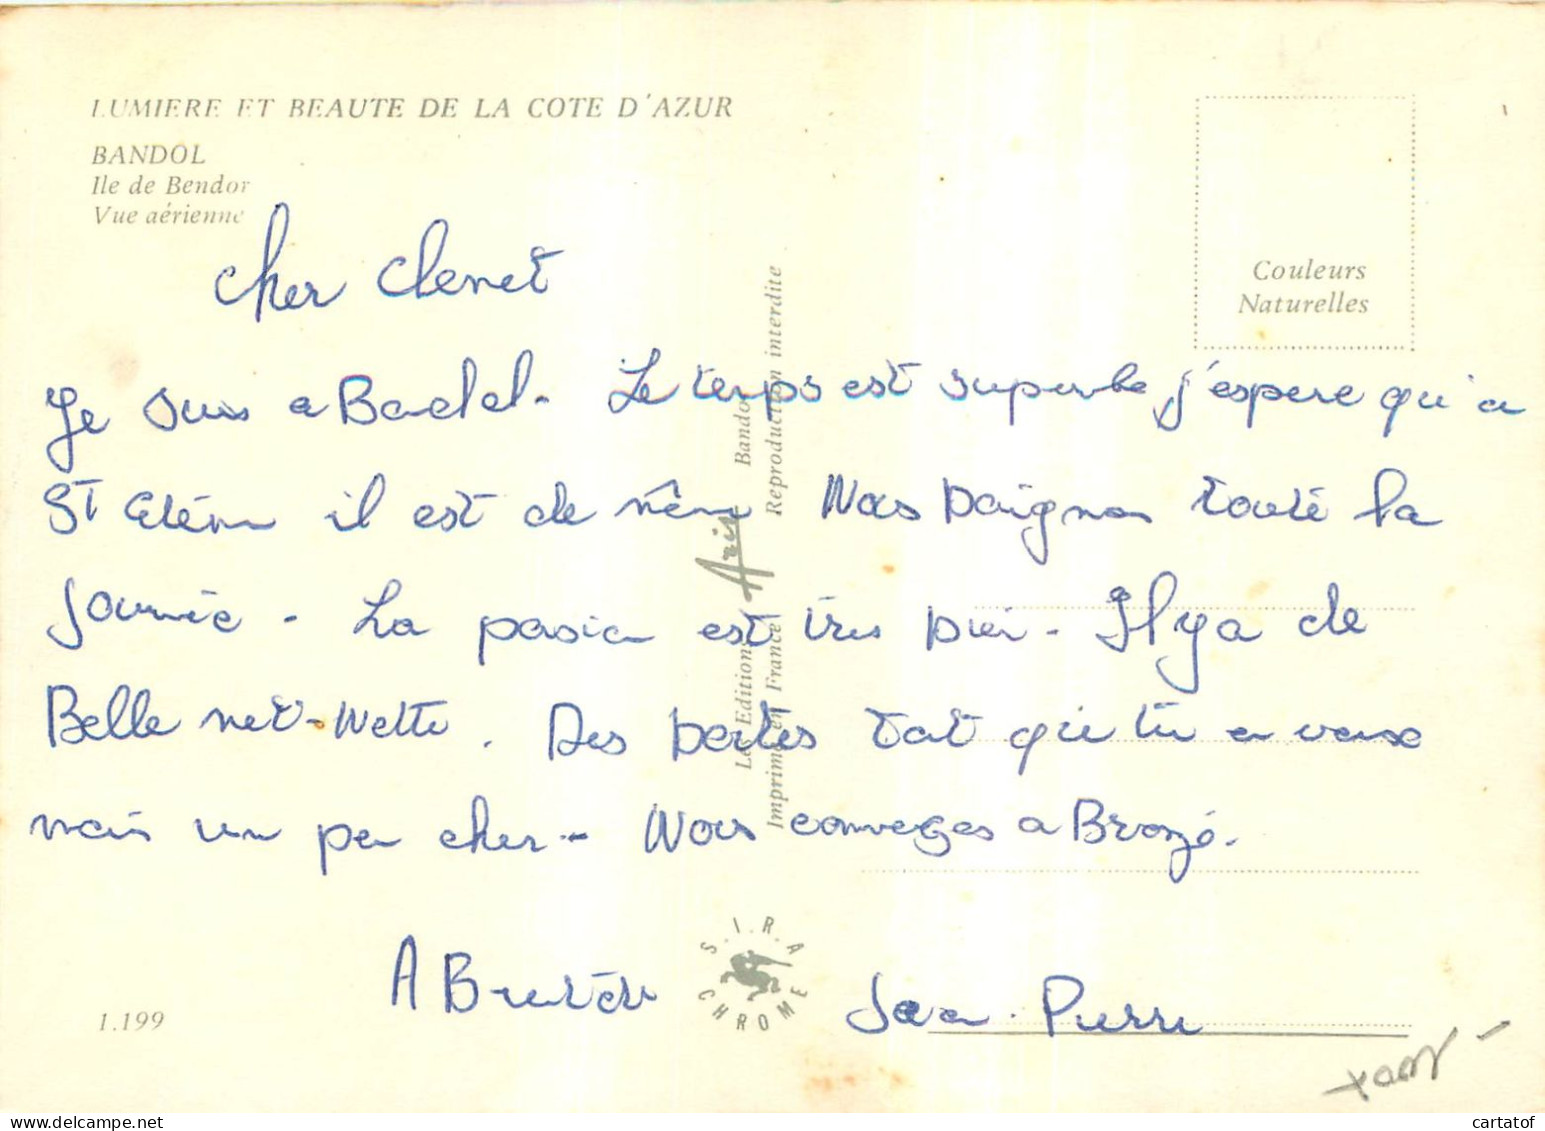 LUMIERE ET BEAUTE DE LA COTE D'AZUR
BANDOL
Ile de Bendor
Vue aérienne
Couleurs
Naturelles
Cher Clenet
Je suis a Badol. Le temps est superbe, j'espere qu'a
St Etéin il est de même Nous Baignon touté la
Journée. La pasion est tres bien. Il y a de
Belle net-Nette. Des Boites tat que tu en veux
mais un peu cher. Nous comveges a Bronzé.
A Bientôt Jean-Pierre
Les Editions Aris Bandol
Imprimé en France Reproduction interdite
S.I.R.A
CHROME
1.199
cartatof